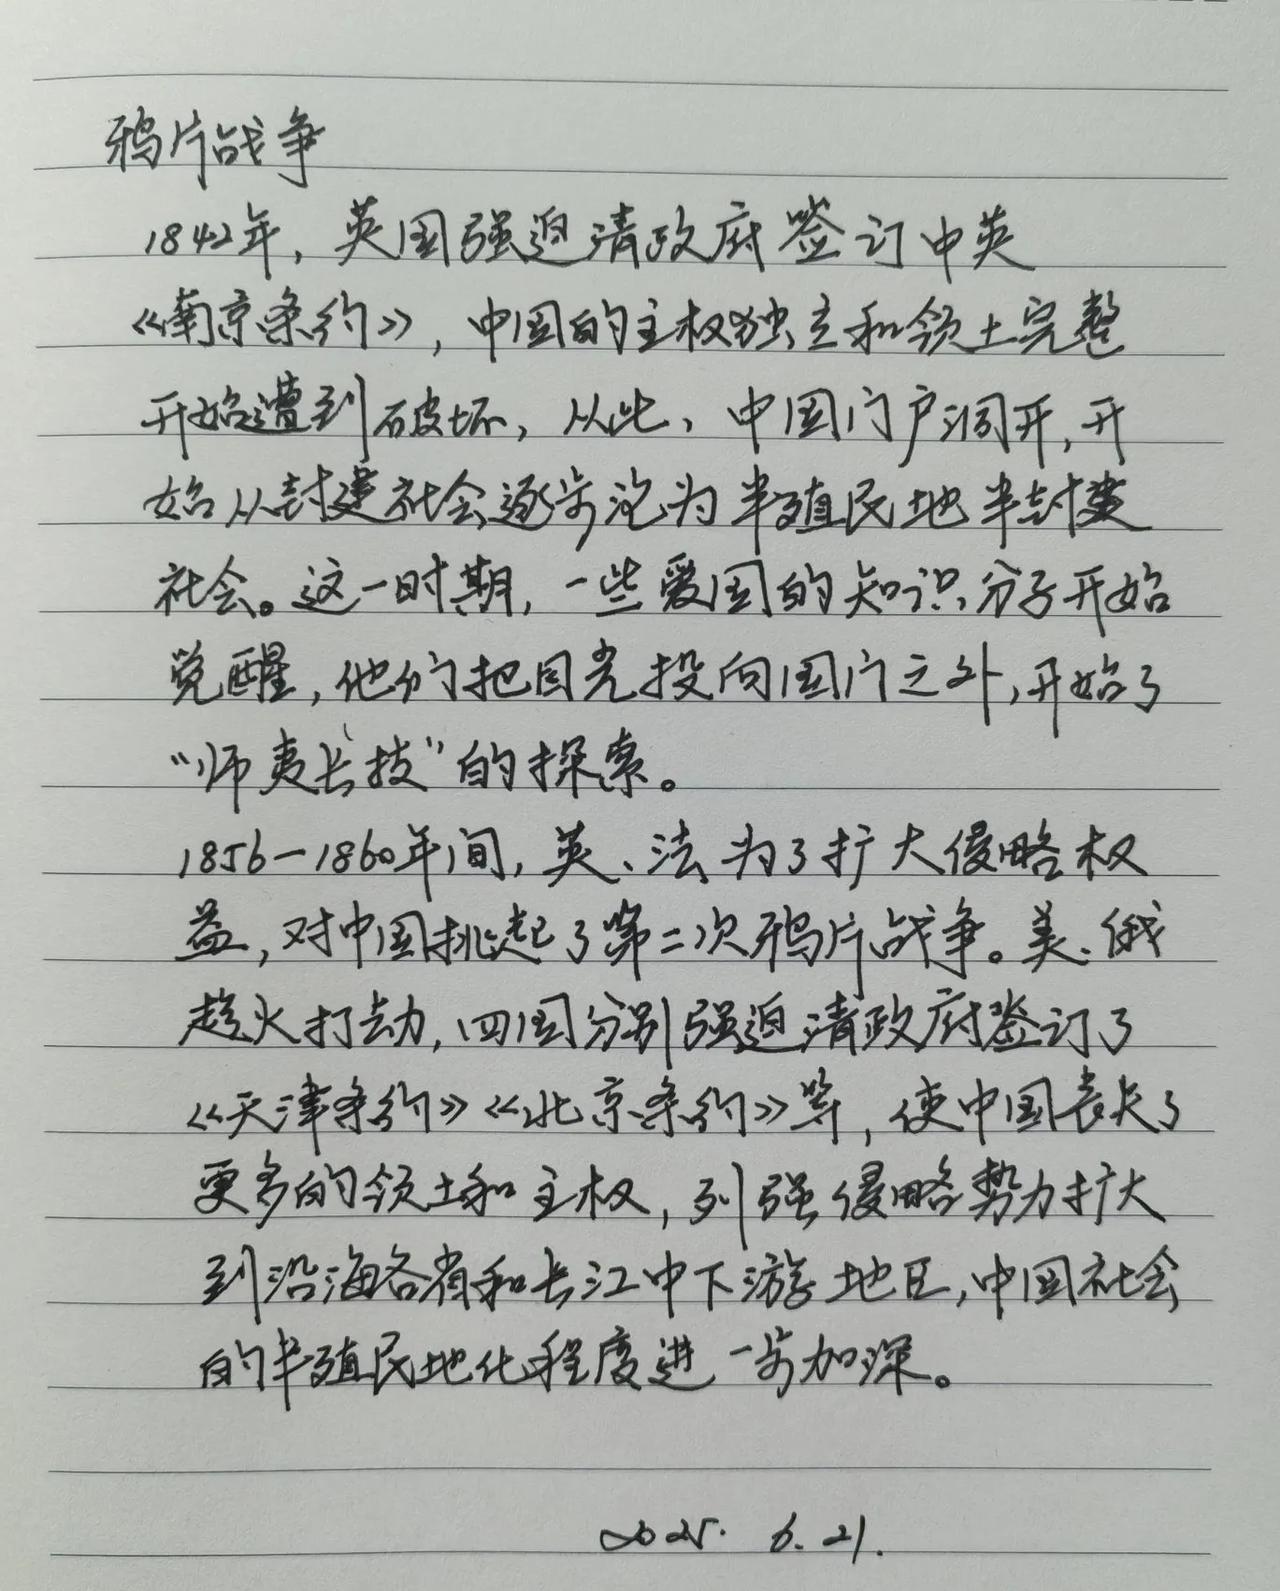 鸦片战争
1842年，英国强迫清政府签订中英
《南京条约》，中国的主权独立和领土完整
开始遭到破坏，从此，中国门户洞开，开
始从封建社会逐步沦为半殖民地半封建
社会。这一时期，一些爱国的知识分子开始
觉醒，他们把目光投向国门之外，开始了
“师夷长技”的探索。
1856—1860年间，英、法为了扩大侵略权
益，对中国挑起了第二次鸦片战争。美、俄
趁火打劫，四国分别强迫清政府签订了
《天津条约》《北京条约》等，使中国丧失了
更多的领土和主权，列强侵略势力扩大
到沿海各省和长江中下游地区，中国社会
的半殖民地化程度进一步加深。
2025. 6.21.